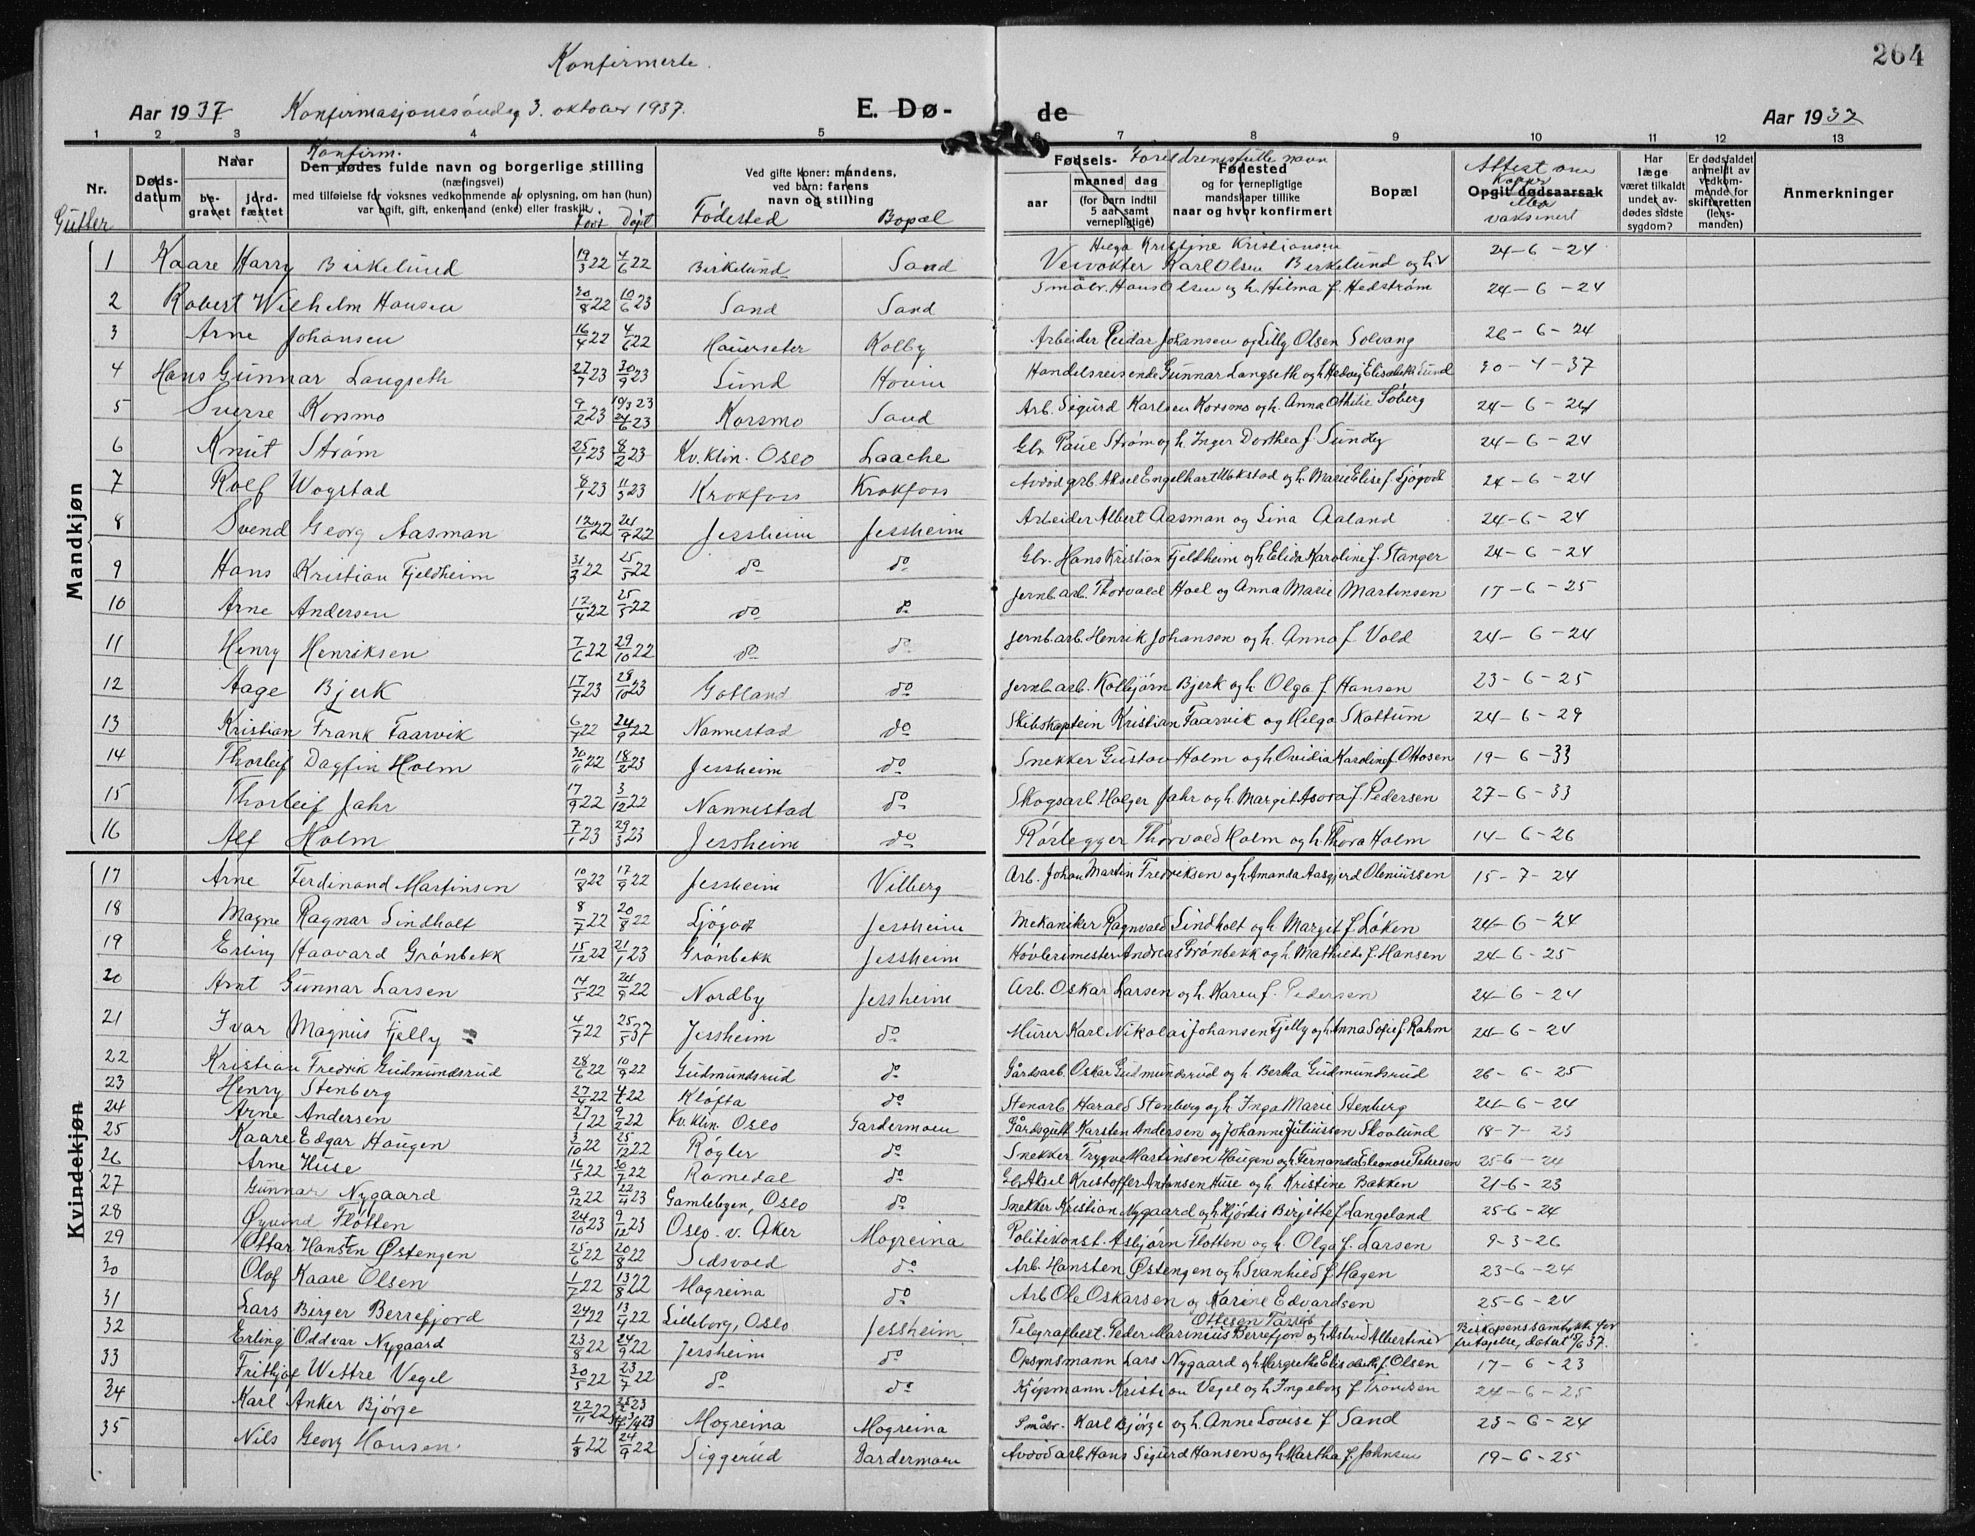 264
Konfirmerte.
Aar 1937 Konfirmasjonssöndag 3. oktober 1937. E. Dø- de Aar 1937
1 2 3 4 5 6 7 8 9 10 11 12 13
Nr. Døds-datum Naar be-gravet jord-fæstet Konfirm. Den dødes fulde navn og borgerlige stilling (næringsvei) med tilføielse for voksnes vedkommende av oplysning, om han (hun) var ugift, gift, enkemand (enke) eller fraskilt Født Döpt Ved gifte koner: mandens, ved barn: farens navn og stilling Födested Bopæl Fødsels- aar maaned dag (for barn indtil 5 aar samt vernepligtige) Foreldrenes fulle navn Fødested og for vernepligtige mandskaper tillike naar og hvor konfirmert Bopæl Attest om Opgit dødsaarsak vaksinert Har læge været tilkaldt under av-dødes sidste sygdom? Er dødsfaldet anmeldt av vedkom-mende for skifteretten (lens-manden) Anmerkninger
Gutter
Mandkjøn
1 Kaare Harry Birkelund 19/3 22 4/6 22 Birkelund Sand Helga Kristine Kristiansen Veivokter Karl Olsen Birkelund og h. 24-6-24
2 Robert Wilhelm Hansen 30/8 22 10/6 23 Sand Sand Småbr. Hans Olsen og h. Hilma f. Hedström 24-6-24
3 Arne Johansen 16/4 22 4/6 22 Hauerseter Kolby Arbeider Reidar Johansen og Lilly Olsen Solvang 26-6-24
4 Hans Gunnar Langseth 27/7 23 30/9 23 Lund Hovin Handelsreisende Gunnar Langseth og h. Hedvig Elisabeth Lund 30-4-37
5 Sverre Korsmo 9/2 23 24/6 23 Korsmo Sand Arb. Sigurd Karlsen Korsmo og h. Anna Othilie Söberg 24-6-24
6 Knut Ström 25/1 23 8/2 23 Kv.klin. Oslo Laache Gbr. Paul Ström og h. Inger Dorthea f. Sundby 24-6-24
7 Rolf Wogstad 8/1 23 11/3 23 Krokfoss Krokfoss Avdød grb. Aksel Engelhart Wokstad og h. Marie Elise f. Ljøgodt 24-6-24
8 Svend Georg Aasman 12/6 22 24/9 22 Jessheim Jessheim Arbeider Albert Aasman og Lina Aaland 24-6-24
9 Hans Kristian Fjeldheim 31/3 22 25/5 22 do do Gbr. Hans Kristian Fjeldheim og h. Elida Karoline f. Stanger 24-6-24
10 Arne Andersen 17/4 22 25/5 22 do do Jernb.arb. Thorvald Hoel og Anna Marie Martinsen 17-6-25
11 Henry Henriksen 7/6 22 29/10 22 do do Jernb.arb. Henrik Johansen og h. Anna f. Vold 24-6-24
12 Aage Bjerk 17/7 23 28/10 23 Gotland do Jernb.arb. Kolbjörn Bjerk og h. Olga f. Hansen 23-6-25
13 Kristian Frank Faarvik 6/7 22 24/9 22 Nannestad do Skibskaptein Kristian Faarvik og Helga Skattum 24-6-29
14 Thorleif Dagfin Holm 30/11 22 18/2 23 Jessheim do Snekker Gustav Holm og h. Ovidia Karoline f. Ottosen 19-6-33
15 Thorleif Jahr 17/9 22 3/12 22 Nannestad do Skogsarb. Holger Jahr og h. Margit Asora f. Pedersen 27-6-33
16 Alf Holm 7/1 23 29/3 23 Jessheim do Rørlegger Thorvald Holm og h. Thora Holm 14-6-26
Kvindekjøn
17 Arne Ferdinand Martinsen 10/8 22 17/9 22 Jessheim Vilberg Arb. Johan Martin Fredriksen og h. Amanda Aasgjerd Oleniussen 15-7-24
18 Magne Ragnar Lindholt 8/7 22 20/8 22 Ljøgodt Jessheim Mekaniker Ragnvald Lindholt og h. Margit f. Løken 24-6-24
19 Erling Haavard Grönbekk 15/12 22 21/1 23 Grönbekk Jessheim Høvlerimester Andreas Grönbekk og h. Mathilde f. Hansen 24-6-25
20 Arnt Gunnar Larsen 14/5 22 24/9 22 Nordby Jessheim Arb. Oskar Larsen og h. Karen f. Pedersen 24-6-24
21 Ivar Magnus Fjelly 4/7 22 25/5 37 Jessheim do Murer Karl Nikolai Johansen Fjelly og h. Anna Sofie f. Rahm 24-6-24
22 Kristian Fredrik Gudmundsrud 28/6 22 10/9 22 Gudmundsrud do Gårdsarb. Oskar Gudmundsrud og h. Bertha Gudmundsrud 26-6-25
23 Henry Stenberg 27/4 22 22 Kløfta do Stenarb. Harald Stenberg og h. Inga Marie Stenberg 24-6-24
24 Arne Andersen 27/1 22 9/2 22 Kv.klin. Oslo Gardermoen Gårdsgutt Karsten Andersen og Johanne Juliussen Skovlund 18-7-23
25 Kaare Edgar Haugen 3/10 22 25/12 22 Røgler do Snekker Trygve Martinsen Haugen og h. Fernanda Eleonore Petersen 25-6-24
26 Arne Huse 16/5 22 30/7 22 Romedal do Gb. Aksel Kristoffer Antonsen Huse og h. Kristine Bakken 21-6-23
27 Gunnar Nygaard 9/12 22 22/4 23 Gamlebyen, Oslo do Snekker Kristian Nygaard og h. Hjördis Birgitte f. Langeland 25-6-24
28 Øyvind Flotten 24/10 23 9/12 23 Oslo. v. Aker Mogreina Politikonst. Asbjörn Flotten og h. Olga f. Larsen 9-3-26
29 Ottar Hansten Østengen 25/6 22 20/8 22 Eidsvold do Arb. Hansten Østengen og h. Svanhild f. Hagen 23-6-24
30 Olaf Kaare Olsen 1/7 22 13/8 22 Mogreina do Arb Ole Oskarsen og Karine Edvardsen 25-6-24
31 Lars Birger Berrefjord 24/1 22 13/4 22 Lilleborg, Oslo Jessheim Telegrafbest. Peder Marinius Berrefjord og h. Astrid Albertine Ottesen Biskopens samtykke for fritagelse, datert 37.
32 Erling Oddvar Nygaard 23/8 22 24/9 22 Jessheim do Opsynsmann Lars Nygaard og h. Margrethe Elisabeth f. Olsen 17-6-23
33 Fritjof Westre Vegel 30/5 22 23/7 22 do do Kjøpmann Kristian Vegel og h. Ingeborg f. Trondsen 24-6-25
34 Karl Anker Bjørge 22/11 22 Mogreina Mogreina Småbr. Karl Bjørge og h. Anne Lovise f. Sand 23-6-24
35 Nils Georg Hansen. 1/8 22 24/9 22 Siggerud Gardermoen Avdød arb Hans Sigurd Hansen og h. Martha f. Johnsen 19-6-25